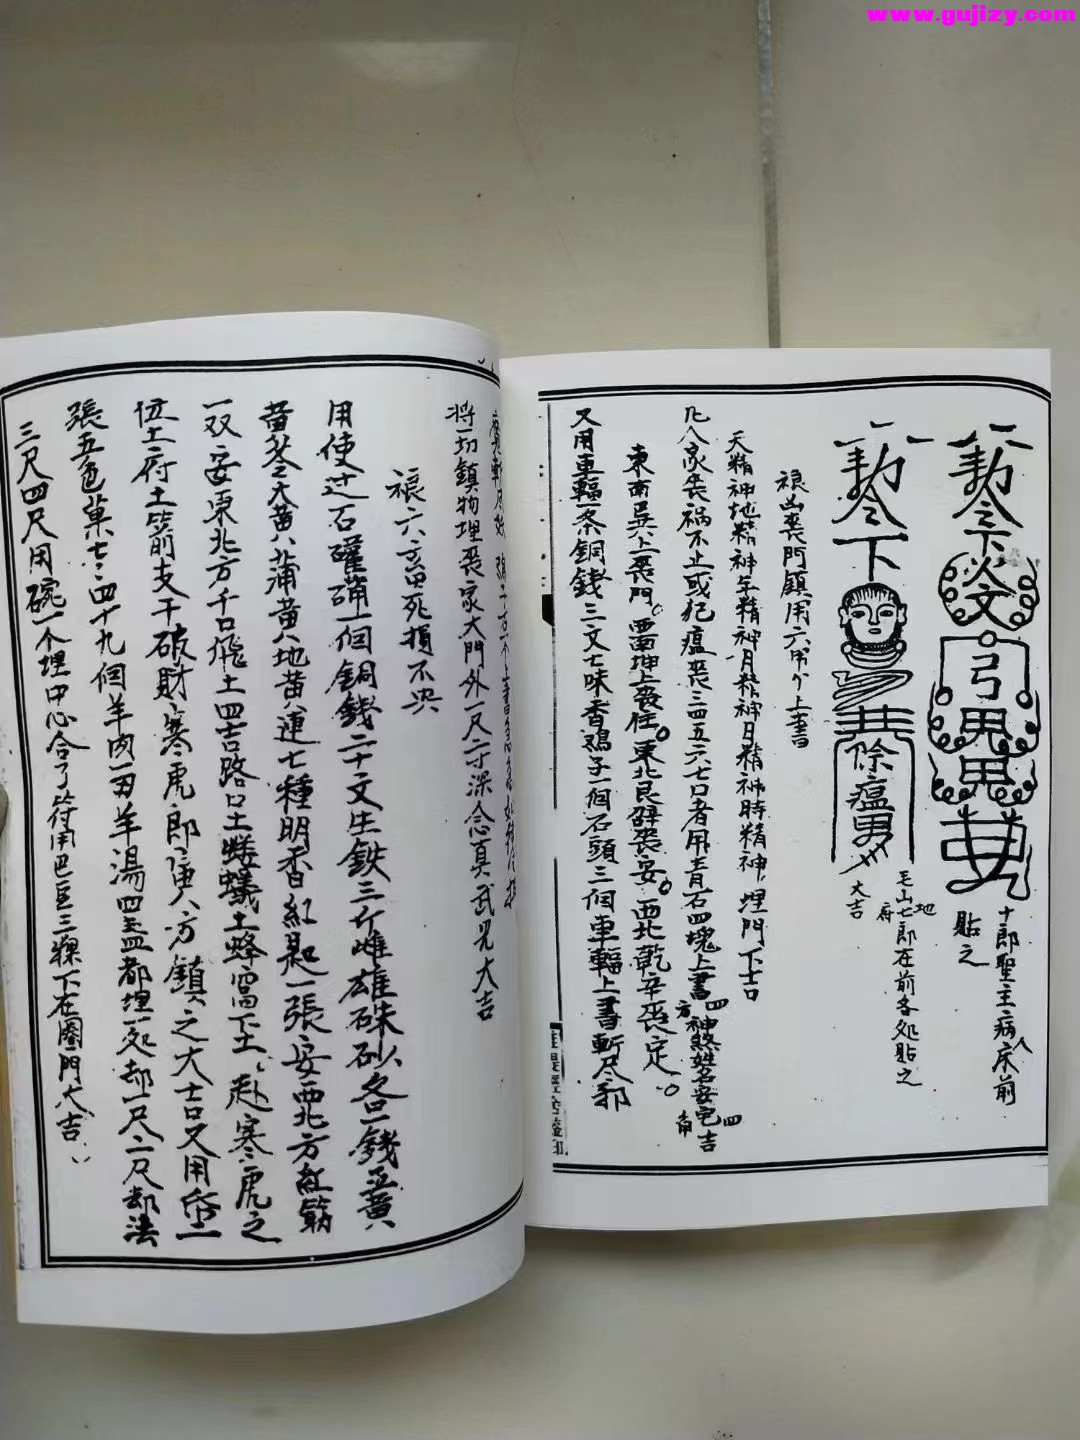 www.gujizy.com
勅令下炎文
弓鬼鬼
十郎聖主病人床前
貼之
勅令下
除瘟
毛山七郎在前各处貼之
地府
大吉
禳凶喪門鎮用六
上書
天精神地精神年精神月精神日精神時精神埋門下吉
凡人家喪禍不止或犯瘟喪三四五六七口者用青石四塊上書四方神煞姓名安宅四角吉
東南巽上喪門西南坤上喪住東北艮辟喪安西北乾辛喪定
又用車輻一条銅錢三文七味香鶏子一個石頭三個車輻上書斬尽邪
將一切鎮物埋喪家大門外一尺二寸深念真武咒大吉
禳六畜死損不
用使过石礶礶一個銅錢二十文生鉄三斤雌雄硃砂各一錢
黄芩大黄蒲黄地黄連七種明香紅匙一張安西北方紅筋
一双安東北方千口飛土四吉路口土螻蟻土蜂窩下土赴寒虎之
位土府土箭支干破財寒虎郎唐八方鎮之大吉又用
張五色菓七七四十九個羊肉一羊湯四盖都埋一処却一尺二尺却法
三尺四尺用碗一个埋中心合了符用巴豆三粿下在圈門大吉